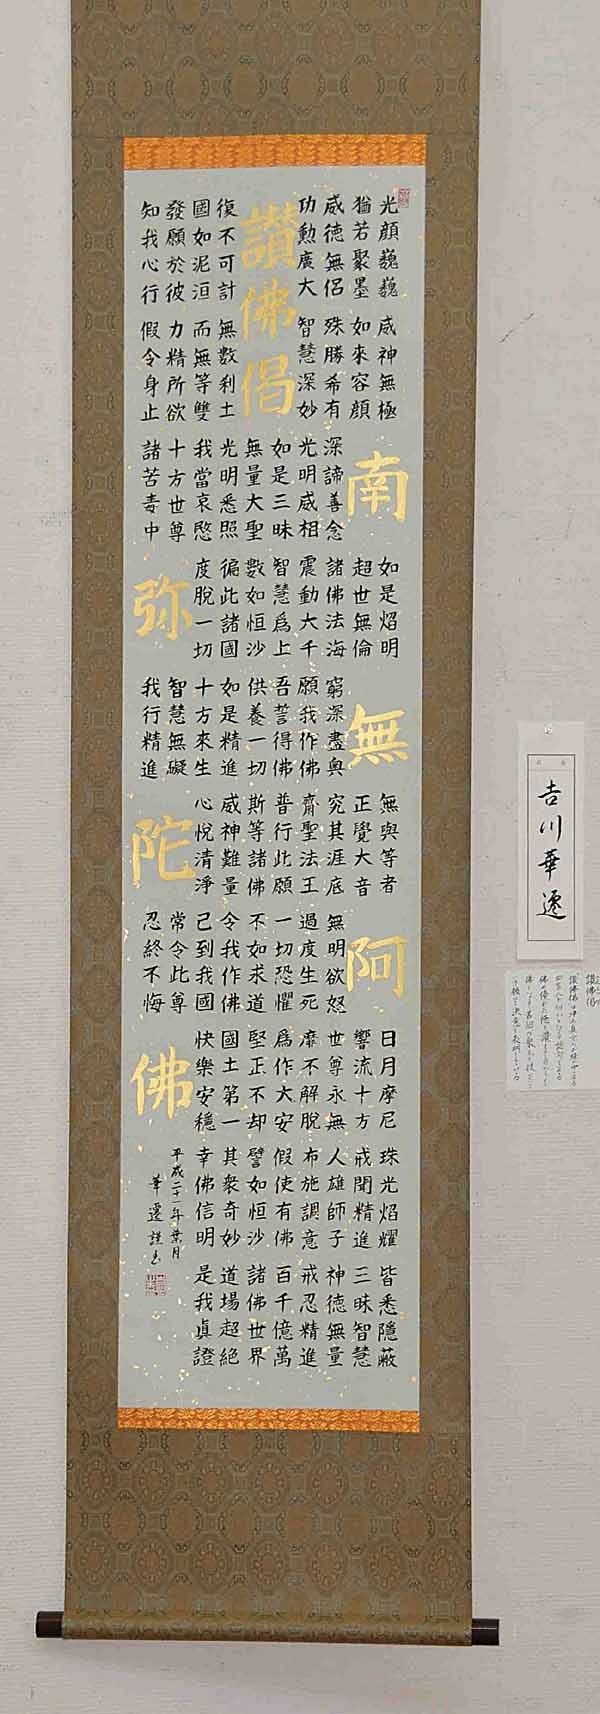 讃佛偈
南無阿弥陀佛
光顔巍巍 威神無極 如是焔明 無與等者 日月摩尼 珠光焔耀 皆悉隠蔽
猶若聚墨 如來容顔 超世無倫 正覺大音 響流十方 戒聞精進 三昧智慧
威徳無侶 殊勝希有 深諦善念 諸佛法海 窮深盡奥 究其涯底 無明欲怒 世尊永無 人雄師子 神徳無量
功勲廣大 智慧深妙 光明威相 震動大千 願我作佛 齋聖法王 過度生死 靡不解脱 布施調意 戒忍精進
如是三昧 智慧爲上 吾誓得佛 普行此願 一切恐懼 爲作大安 假使有佛 百千億萬
無量大聖 數如恒沙 供養一切 斯等諸佛 不如求道 堅正不却 譬如恒沙 諸佛世界
復不可計 無數刹土 光明悉照 徧此諸國 如是精進 威神難量 令我作佛 國土第一 其衆奇妙 道場超絶
國如泥洹 而無等雙 我當哀愍 度脱一切 十方來生 心悦清淨 已到我國 快樂安穏 幸佛信明 是我眞證
發願於彼 力精所欲 十方世尊 智慧無礙 常令此尊
知我心行 假令身止 諸苦毒中 我行精進 忍終不悔
平成二十一年葉月
華遷謹書
吉川華遷
讃佛偈